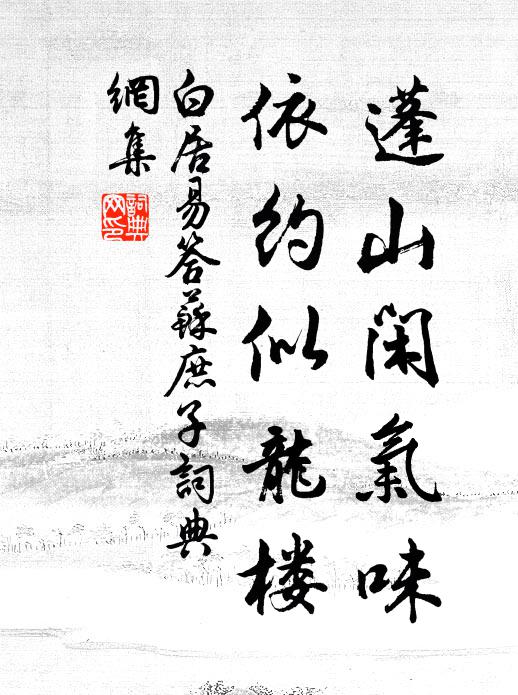 蓬山闲氣味
依約似龍楼
白居易答蘇庶子詞典
網集
詞典
网印